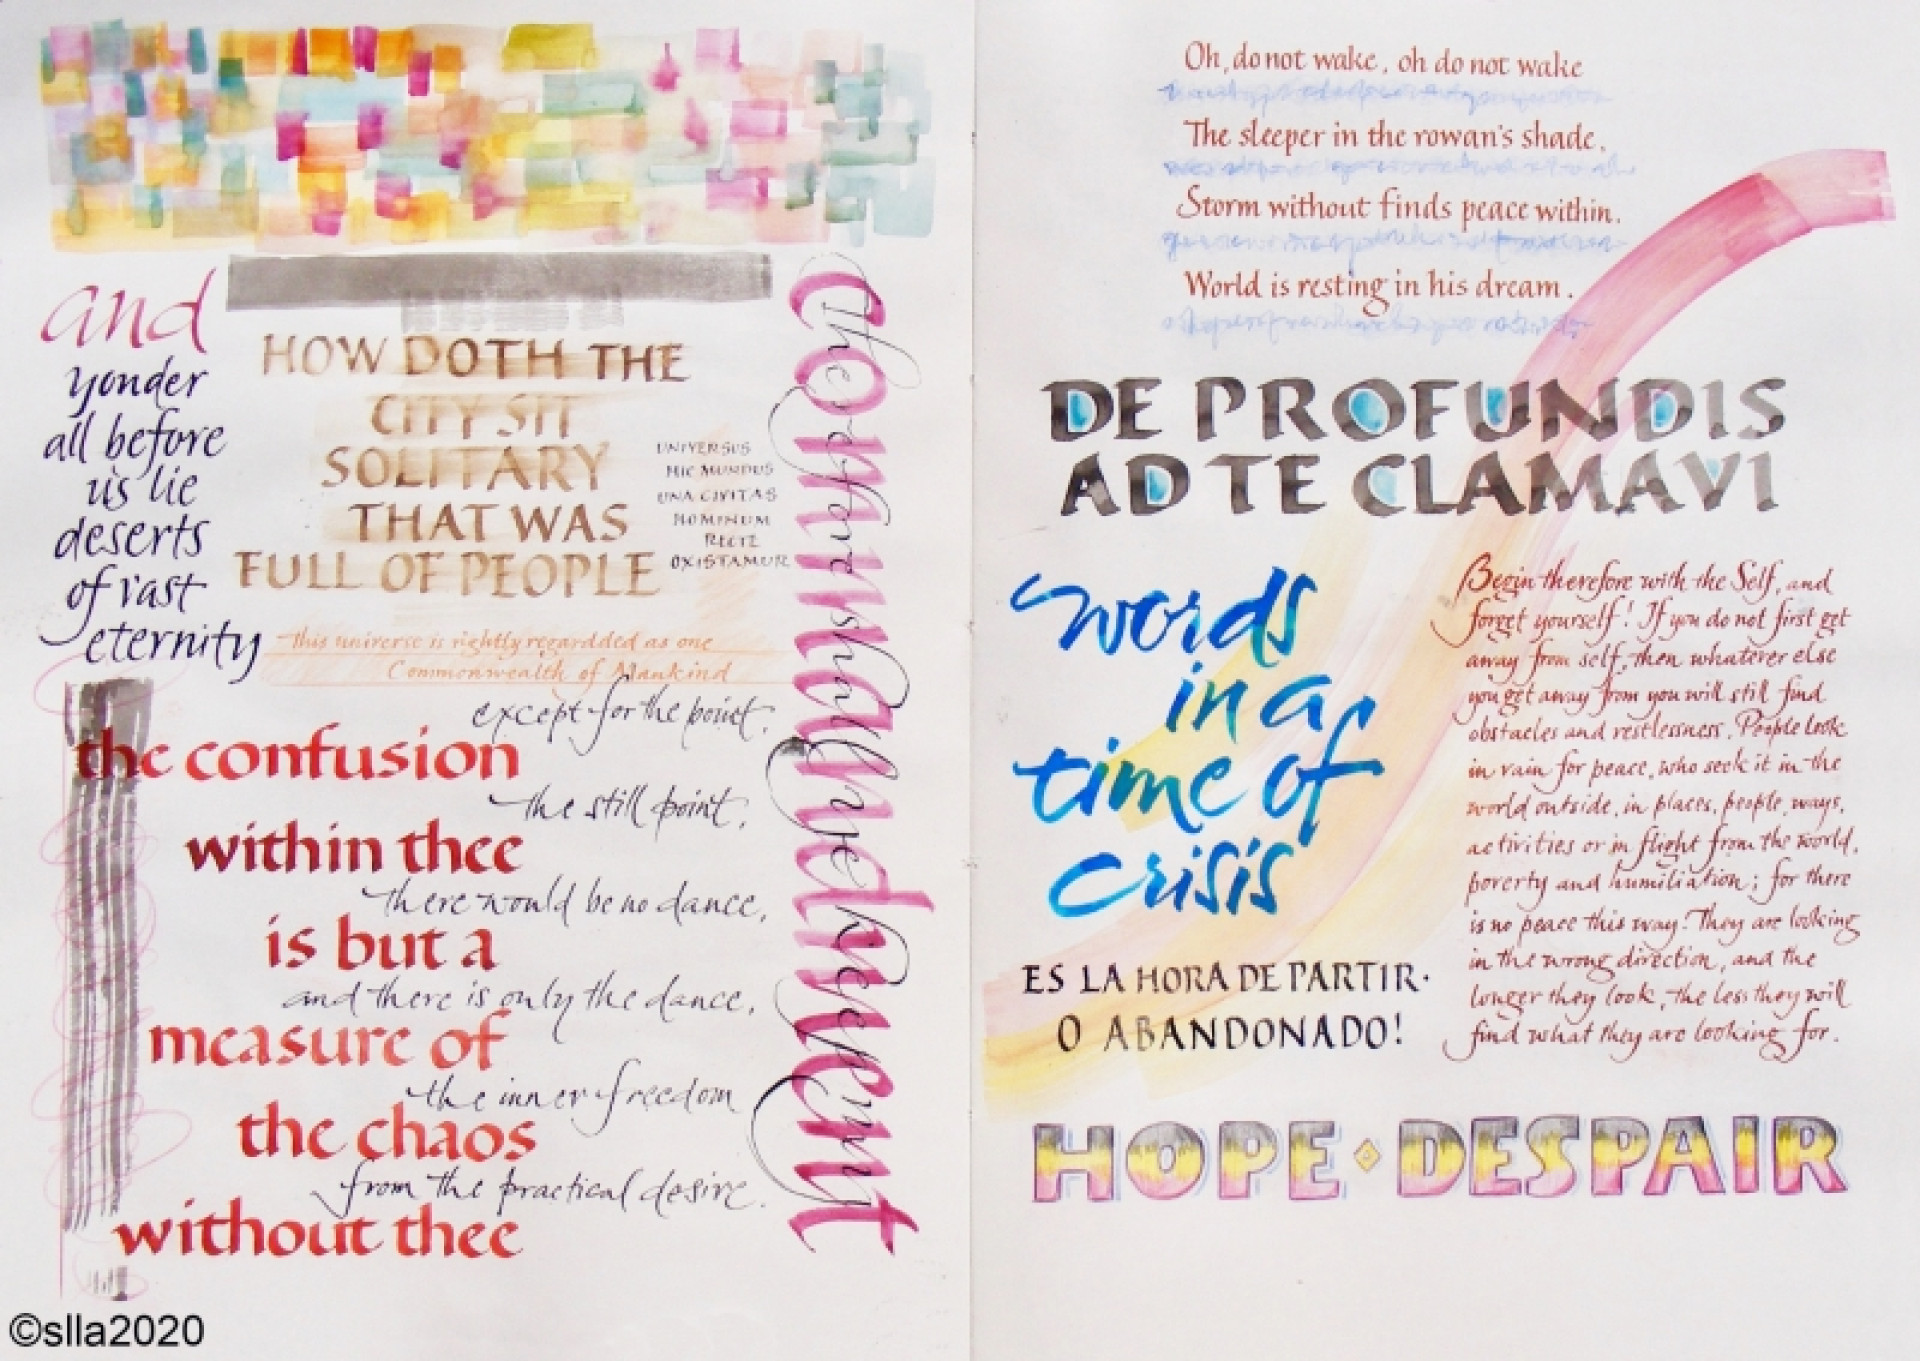 and
yonder
all before
us lie
deserts
of vast
eternity
HOW DOTH THE
CITY SIT
SOLITARY
THAT WAS
FULL OF PEOPLE
UNIVERSUS
HIC MUNDUS
UNA CIVITAS
HOMINUM
RECTE
OXISTAMUR
This universe is rightly regardded as one
Commonwealth of Mankind
except for the point,
the confusion
the still point,
within thee
there would be no dance,
is but a
and there is only the dance,
measure of
the inner freedom
the chaos
from the practical desire.
without thee
commandment
therefore shall ye keep my
Oh, do not wake, oh do not wake
The sleeper in the rowan's shade,
Storm without finds peace within,
World is resting in his dream.
DE PROFUNDIS
AD TE CLAMAVI
words
in a
time of
crisis
ES LA HORA DE PARTIR·
O ABANDONADO!
Begin therefore with the Self, and
forget yourself! If you do not first get
away from self, then whatever else
you get away from you will still find
obstacles and restlessness. People look
in vain for peace, who seek it in the
world outside, in places, people, ways,
activities or in flight from the world,
poverty and humiliation; for there
is no peace this way! They are looking
in the wrong direction, and the
longer they look, the less they will
find what they are looking for.
HOPE · DESPAIR
©slla2020